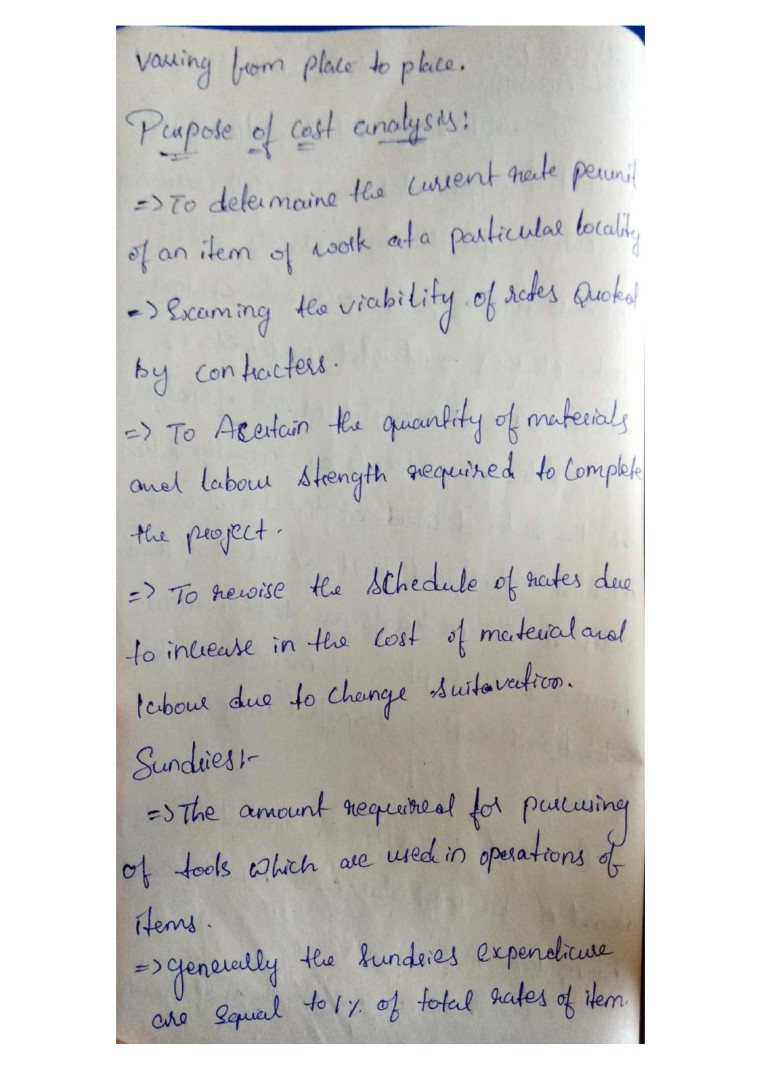 varying from place to place.
Purpose of cost analysis:
=> To determaine the current rate perunit
of an item of work at a particular locality
=> Examing the viability of rates Quoted
by contracters.
=> To Acertain the quantity of materials
and labour strength required to Complete
the project.
=> To rewise the schedule of rates due
to increase in the cost of material and
labour due to change
Sundries:-
=> The amount required for
of tools which are used in operations of
items.
=> generally the sundries expendicure
are equal to 1% of total rates of item.